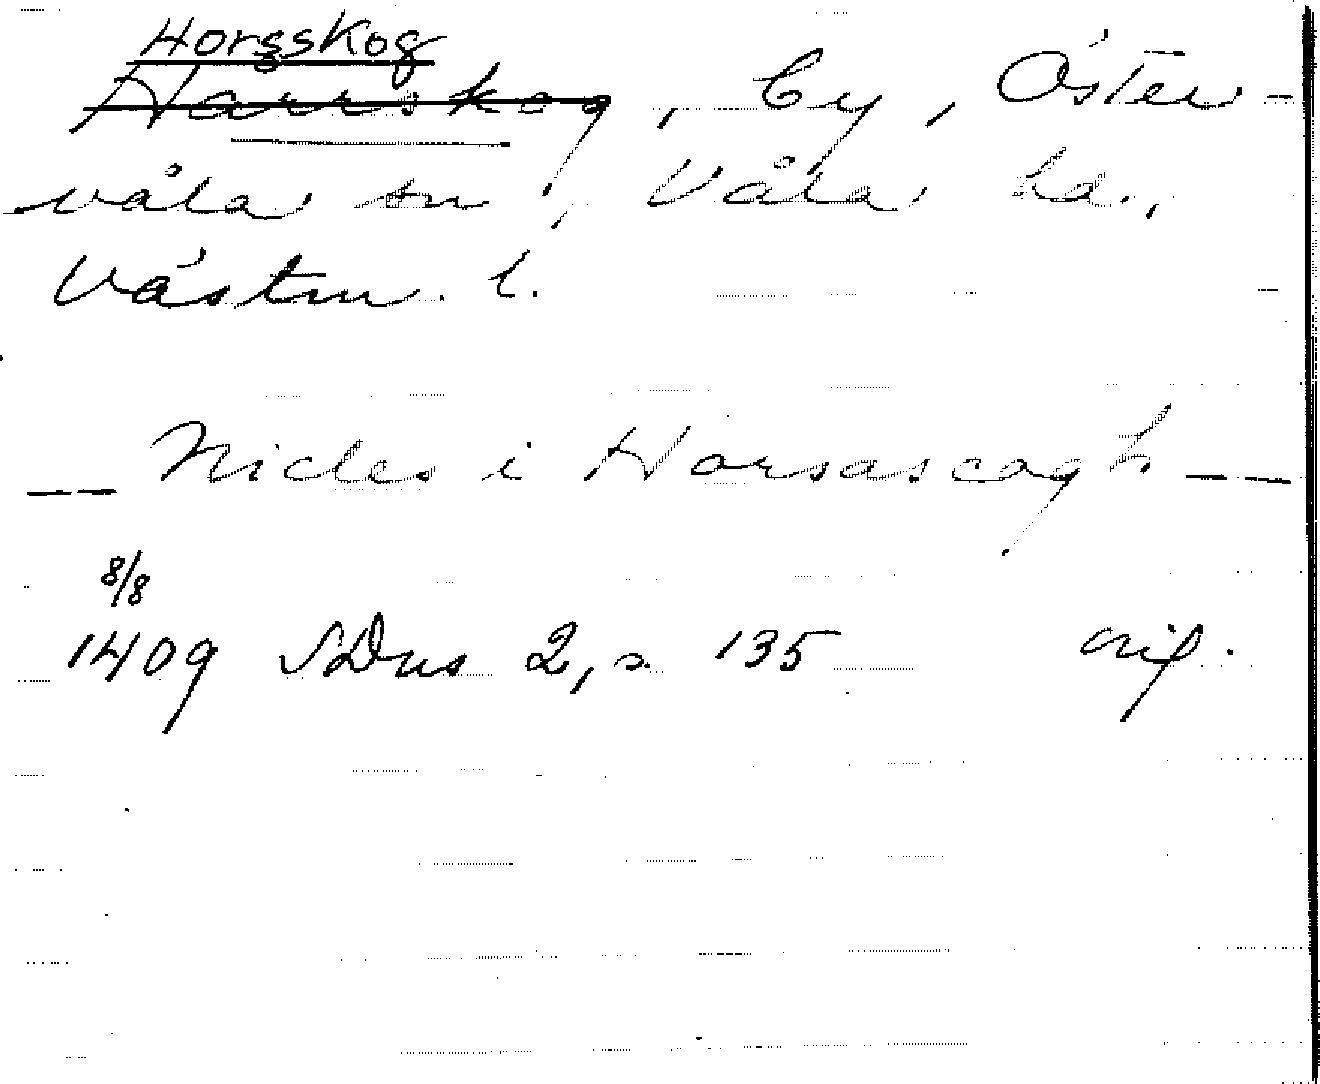 Horsskog
Harrskog, by, Öster-
våla sn, Våla hd.,
Västm. l.
—— Nicles i Horsascogh ——
8/8
1409 SDns 2, s. 135 orig.